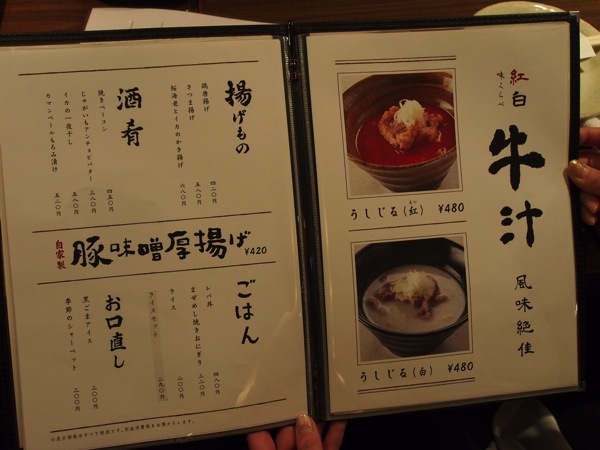 揚げもの
鶏唐揚げ 四二〇円
さつま揚げ 五八〇円
桜海老とイカのかき揚げ 六八〇円
酒肴
焼きベーコン 四五〇円
じゃがいもアンチョビバター 三八〇円
イカの一夜干し 五八〇円
カマンベールもろみ漬け 五二〇円
自家製
豚味噌厚揚げ ¥420
ごはん
レバ丼 四八〇円
まぜめし焼きおにぎり 二二〇円
ライス 二〇〇円
ライスセット 二九〇円
お口直し
黒ごまアイス 三〇〇円
季節のシャーベット 三〇〇円
紅白
味くらべ
牛汁
風味絶佳
うしじる(紅) ¥480
うしじる(白) ¥480